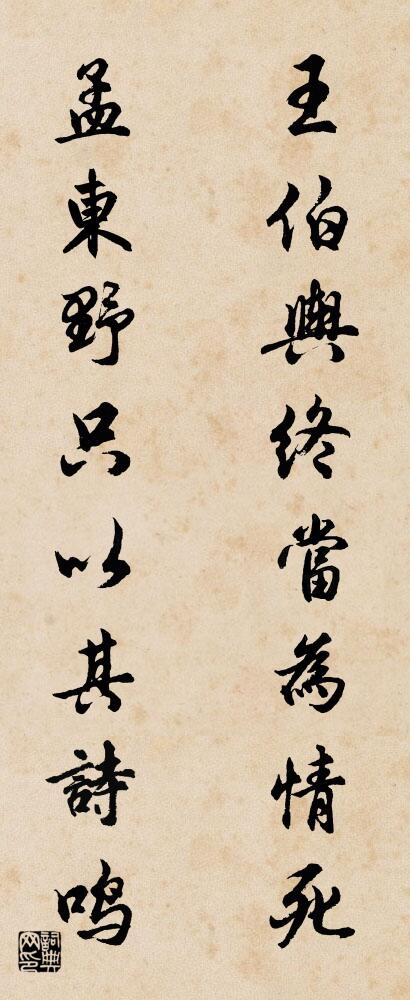 王伯輿終當為情死
孟東野只以其詩鳴
詞典
网印